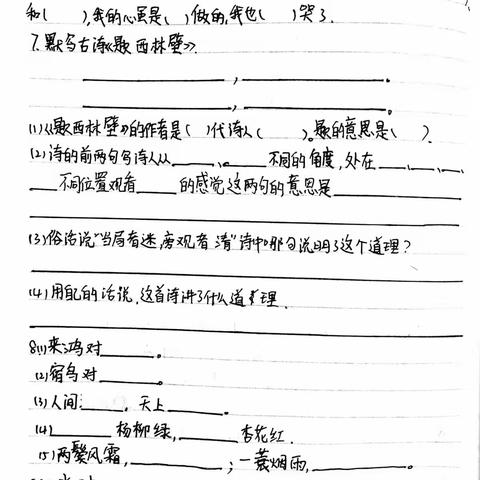 和( ),我的心虽是( )做的,我也( )哭了.
7.默写古诗《题西林壁》.
________,________。
________,________。
(1)《题西林壁》的作者是( )代诗人( )。题的意思是( )?
(2)诗的前两句写诗人从____、____不同的角度,处在____、____、
____不同位置观看____的感觉这两句的意思是________
(3)俗话说"当局者迷,旁观者清"诗中哪句说明了这个道理?
(4)用自己的话说,这首诗讲了什么道理.
8(1)来鸿对____。
(2)宿鸟对____。
(3)人间____,天上____。
(4)____杨柳绿,____杏花红.
(5)两鬓风霜,____;一蓑烟雨,____。